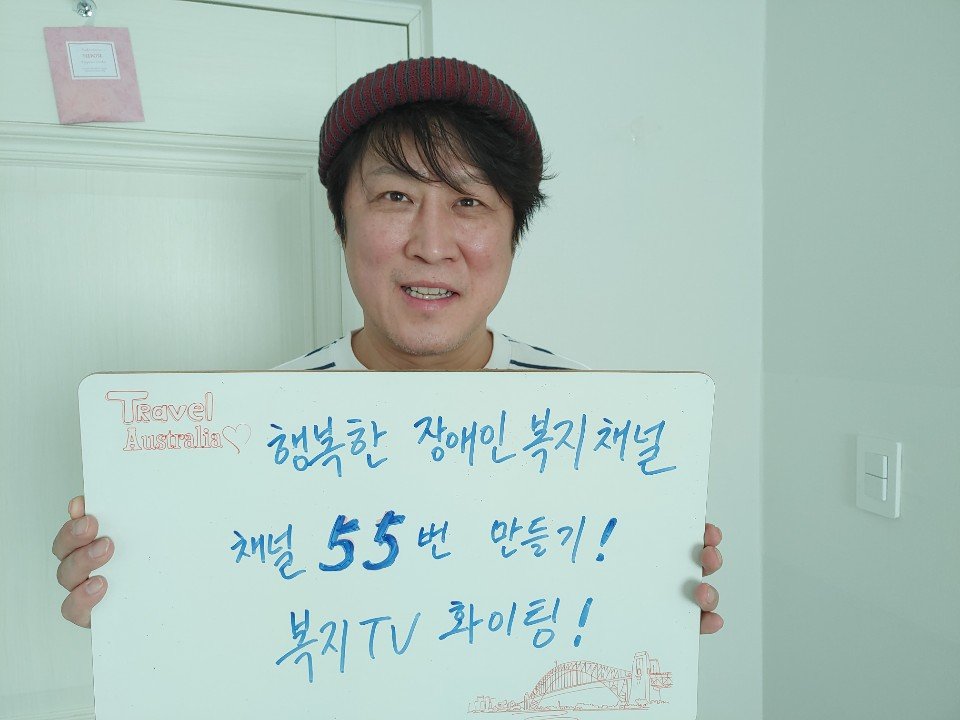 Travel
Australia
행복한 장애인복지채널
채널 55번 만들기!
복지TV 화이팅!